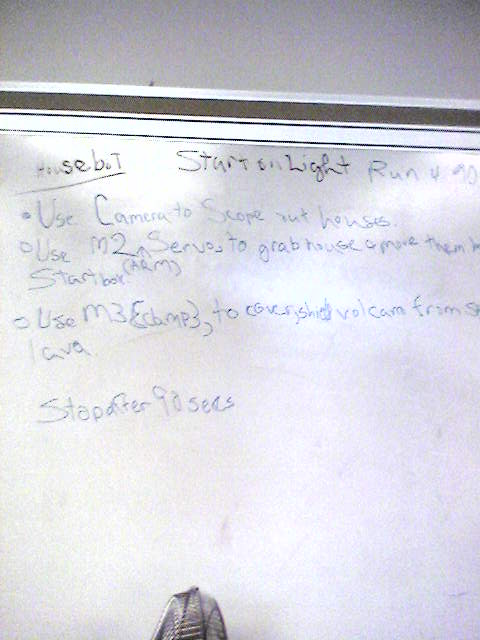 HouseboT Start on Light Run 4 90
• Use Camera to Scope out houses.
• Use M2, Servos to grab house & move them
(ARM)
Startbox.
• Use M3 to cover, shield volcano from
lava
Stop after 90 secs